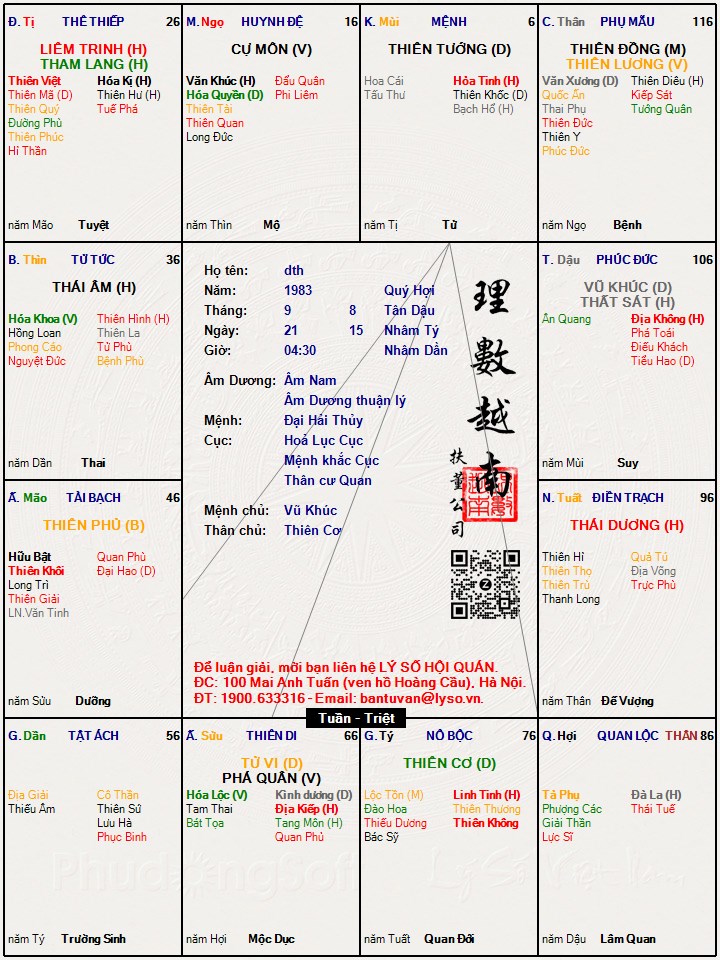 Đ. Tị THÊ THIẾP 26
LIÊM TRINH (H)
THAM LANG (H)
Thiên Việt Hóa Kị (H)
Thiên Mã (D) Thiên Hư (H)
Thiên Quý Tuế Phá
Đường Phù
Thiên Phúc
Hỉ Thần
năm Mão Tuyệt
M. Ngọ HUYNH ĐỆ 16
CỰ MÔN (V)
Văn Khúc (H) Đẩu Quân
Hóa Quyền (D) Phi Liêm
Thiên Tài
Thiên Quan
Long Đức
năm Thìn Mộ
K. Mùi MỆNH 6
THIÊN TƯỚNG (D)
Hoa Cái Hỏa Tinh (H)
Tấu Thư Thiên Khốc (D)
Bạch Hổ (H)
năm Tị Tử
C. Thân PHỤ MẪU 116
THIÊN ĐỒNG (M)
THIÊN LƯƠNG (V)
Văn Xương (D) Thiên Diêu (H)
Quốc Ấn Kiếp Sát
Thai Phụ Tướng Quân
Thiên Đức
Thiên Y
Phúc Đức
năm Ngọ Bệnh
B. Thìn TỬ TỨC 36
THÁI ÂM (H)
Hóa Khoa (V) Thiên Hình (H)
Hồng Loan Thiên La
Phong Cáo Tử Phù
Nguyệt Đức Bệnh Phù
năm Dần Thai
Họ tên: dth
Năm: 1983 Quý Hợi
Tháng: 9 8 Tân Dậu
Ngày: 21 15 Nhâm Tý
Giờ: 04:30 Nhâm Dần
Âm Dương: Âm Nam
Âm Dương thuận lý
Mệnh: Đại Hải Thủy
Cục: Hoả Lục Cục
Mệnh khắc Cục
Thân cư Quan
Mệnh chủ: Vũ Khúc
Thân chủ: Thiên Cơ
理數越南
扶董公司
T. Dậu PHÚC ĐỨC 106
VŨ KHÚC (D)
THẤT SÁT (H)
Ân Quang Địa Không (H)
Phá Toái
Điếu Khách
Tiểu Hao (D)
năm Mùi Suy
Ấ. Mão TÀI BẠCH 46
THIÊN PHỦ (B)
Hữu Bật Quan Phù
Thiên Khôi Đại Hao (D)
Long Trì
Thiên Giải
LN.Văn Tinh
năm Sửu Dưỡng
N. Tuất ĐIỀN TRẠCH 96
THÁI DƯƠNG (H)
Thiên Hỉ Quả Tú
Thiên Thọ Địa Võng
Thiên Trù Trực Phù
Thanh Long
năm Thân Đế Vượng
Để luận giải, mời bạn liên hệ LÝ SỐ HỘI QUÁN.
ĐC: 100 Mai Anh Tuấn (ven hồ Hoàng Cầu), Hà Nội.
ĐT: 1900.633316 - Email: bantuvan@lyso.vn.
Tuần - Triệt
G. Dần TẬT ÁCH 56
Địa Giải Cô Thần
Thiếu Âm Thiên Sứ
Lưu Hà
Phục Binh
năm Tý Trường Sinh
Ấ. Sửu THIÊN DI 66
TỬ VI (D)
PHÁ QUÂN (V)
Hóa Lộc (V) Kình dương (D)
Tam Thai Địa Kiếp (H)
Bát Tọa Tang Môn (H)
Quan Phủ
năm Hợi Mộc Dục
G. Tý NÔ BỘC 76
THIÊN CƠ (D)
Lộc Tồn (M) Linh Tinh (H)
Đào Hoa Thiên Thương
Thiếu Dương Thiên Không
Bác Sỹ
năm Tuất Quan Đới
Q. Hợi QUAN LỘC THÂN 86
Tả Phụ Đà La (H)
Phượng Các Thái Tuế
Giải Thần
Lực Sĩ
năm Dậu Lâm Quan
PhuđổngSoft
Lý Số Việt Nam